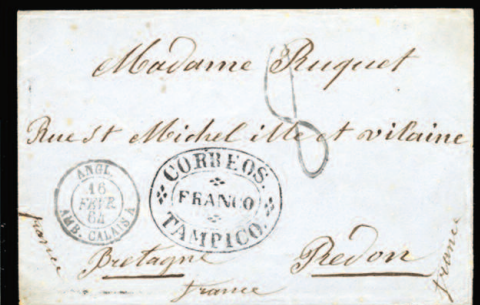 Madame Ruquet
8
Rue St Michel ille et vilaine
ANGL.
16
FEVR.
64
AMB. CALAIS A
CORREOS.
FRANCO
TAMPICO.
france
Bretagne
Redon
france
france